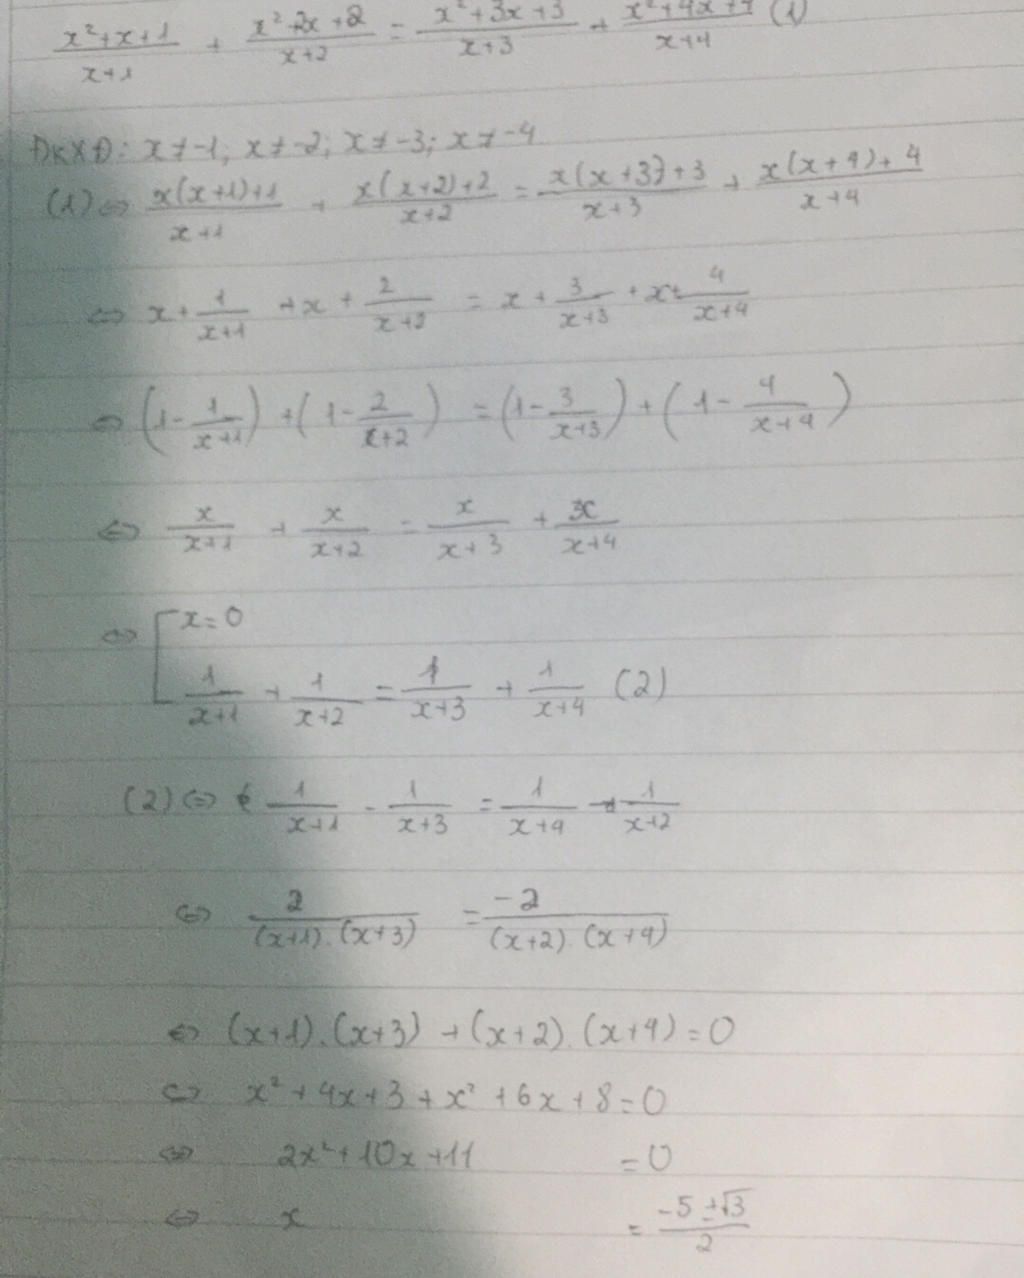 (x²+x+1)/(x+1) + (x²+2x+2)/(x+2) = (x²+3x+3)/(x+3) + (x²+4x+4)/(x+4) (1)
ĐKXĐ: x≠-1; x≠-2; x≠-3; x≠-4
(1) ⇔ (x(x+1)+1)/(x+1) + (x(x+2)+2)/(x+2) = (x(x+3)+3)/(x+3) + (x(x+4)+4)/(x+4)
⇔ x + 1/(x+1) + x + 2/(x+2) = x + 3/(x+3) + x + 4/(x+4)
⇔ (1 - 1/(x+1)) + (1 - 2/(x+2)) = (1 - 3/(x+3)) + (1 - 4/(x+4))
⇔ x/(x+1) + x/(x+2) = x/(x+3) + x/(x+4)
⇔ [ x=0
1/(x+1) + 1/(x+2) = 1/(x+3) + 1/(x+4) (2)
(2) ⇔ 1/(x+1) - 1/(x+3) = 1/(x+4) - 1/(x+2)
⇔ 2/((x+1).(x+3)) = -2/((x+2).(x+4))
⇔ (x+1).(x+3) + (x+2).(x+4) = 0
⇔ x² + 4x + 3 + x² + 6x + 8 = 0
⇔ 2x² + 10x + 11 = 0
⇔ x = (-5 ± √3)/2